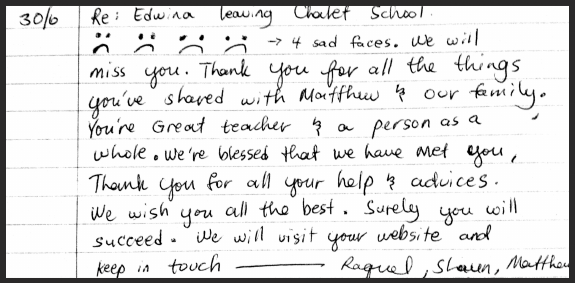 30/6 Re: Edwina leaving Chalet School.
→ 4 sad faces. We will
miss you. Thank you for all the things
you've shared with Matthew & our family.
You're Great teacher & a person as a
whole. We're blessed that we have met you,
Thank you for all your help & advices.
We wish you all the best. Surely you will
succeed. We will visit your website and
keep in touch — Raquel, Shaun, Matthew